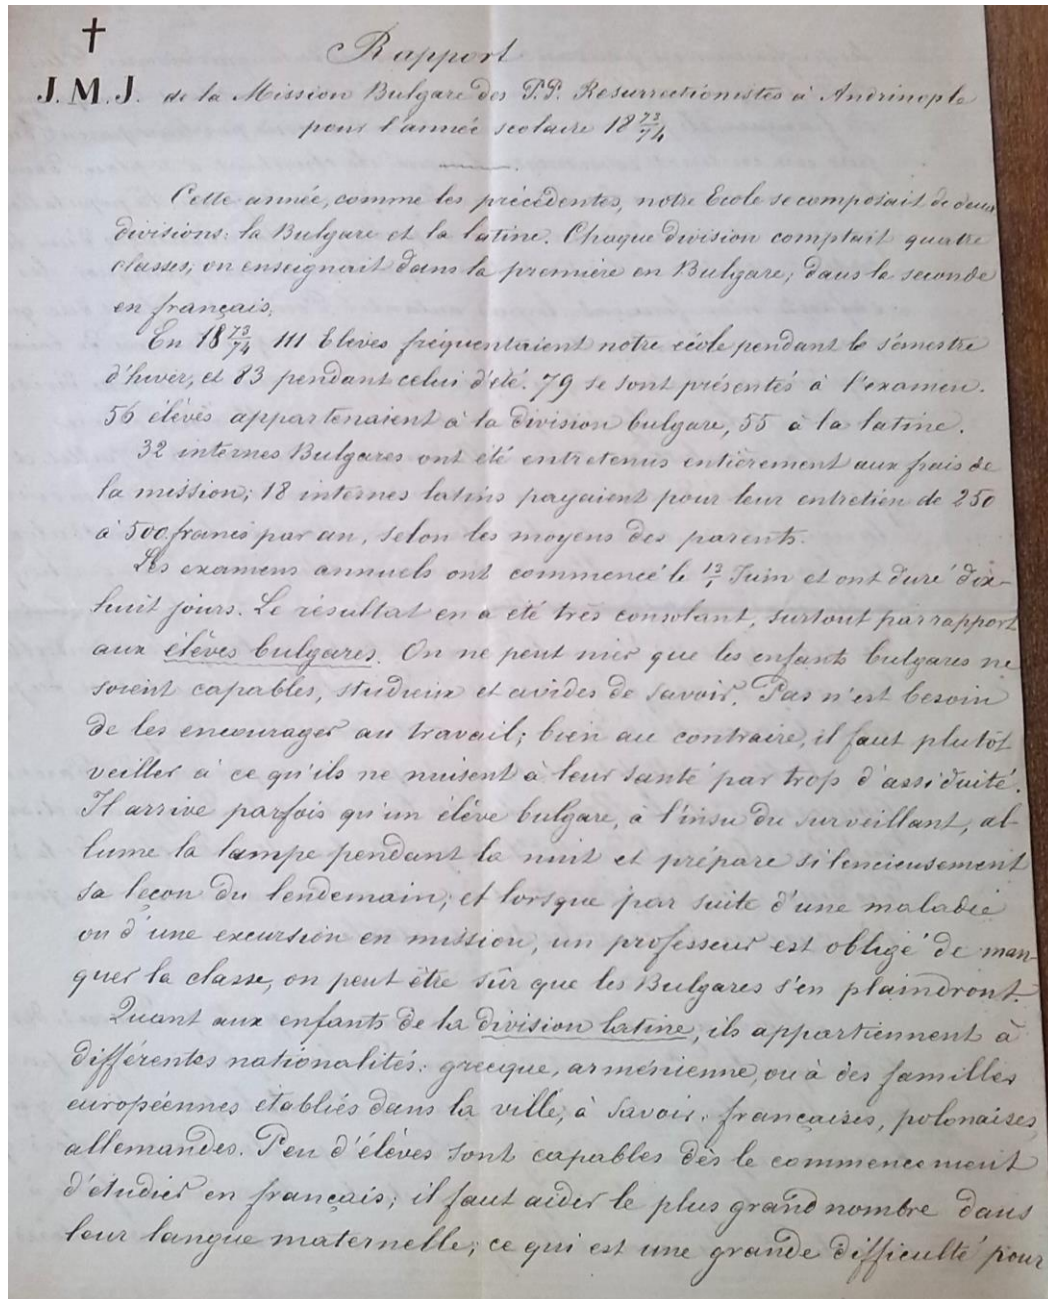 †
Rapport
J. M. J. de la Mission Bulgare des P.P. Resurrectionistes à Andrinople
pour l'année scolaire 18 73/74
Cette année, comme les précédentes, notre Ecole se composait de deux
divisions: la Bulgare et la latine. Chaque division comptait quatre
classes; on enseignait dans la première en Bulgare; dans la seconde
en français.
En 18 73/74 111 Elèves fréquentaient notre école pendant le sémestre
d'hiver, et 83 pendant celui d'été. 79 se sont présentés à l'examen.
56 élèves appartenaient à la division bulgare, 55 à la latine.
32 internes Bulgares ont été entretenus entièrement aux frais de
la mission; 18 internes latins payaient pour leur entretien de 250
à 500 francs par an, selon les moyens des parents.
Les examens annuels ont commencé le 13/1 Juin et ont duré dix-
huit jours. Le résultat en a été très consolant, surtout par rapport
aux élèves bulgares. On ne peut nier que les enfants bulgares ne
soient capables, studieux et avides de savoir. Pas n'est besoin
de les encourager au travail; bien au contraire, il faut plutôt
veiller à ce qu'ils ne nuisent à leur santé par trop d'assiduité.
Il arrive parfois qu'un élève bulgare, à l'insu du surveillant, al-
lume la lampe pendant la nuit et prépare silencieusement
sa leçon du lendemain; et lorsque par suite d'une maladie
ou d'une excursion en mission, un professeur est obligé de man-
quer la classe, on peut être sûr que les Bulgares s'en plaindront.
Quant aux enfants de la division latine, ils appartiennent à
différentes nationalités: grecque, arménienne, ou à des familles
européennes établies dans la ville, à savoir: françaises, polonaises,
allemandes. Peu d'élèves sont capables dès le commencement
d'étudier en français; il faut aider le plus grand nombre dans
leur langue maternelle; ce qui est une grande difficulté pour